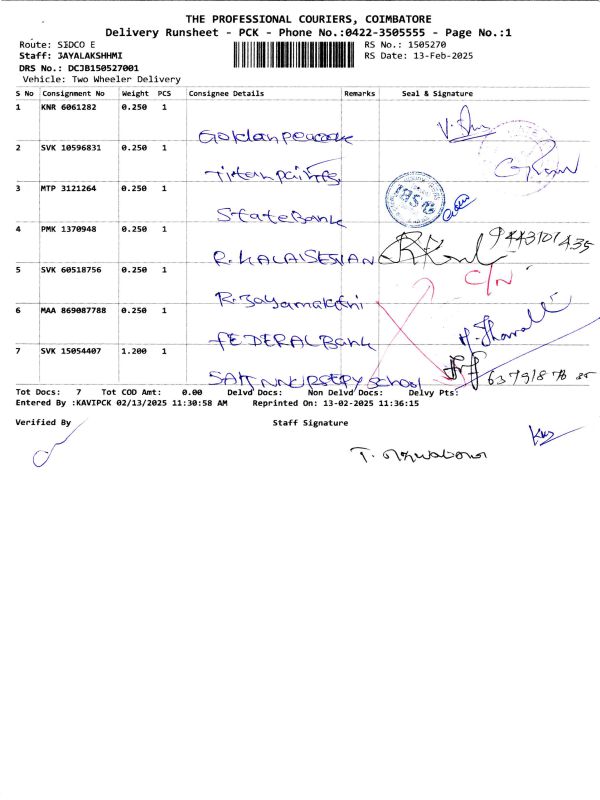 THE PROFESSIONAL COURIERS, COIMBATORE
Delivery Runsheet - PCK - Phone No.:0422-3505555 - Page No.:1
Route: SIDCO E
RS No.: 1505270
Staff: JAYALAKSHHMI
RS Date: 13-Feb-2025
DRS No.: DCJB150527001
Vehicle: Two Wheeler Delivery
S No Consignment No Weight PCS Consignee Details Remarks Seal & Signature
1 KNR 6061282 0.250 1
Goldan peacock
2 SVK 10596831 0.250 1
Titan paints
3 MTP 3121264 0.250 1
State Bank
4 PMK 1370948 0.250 1
R. KALAISESIAN 9443101435
5 SVK 60518756 0.250 1
C/N
R. Jayamakani
6 MAA 869087788 0.250 1
FEDERAL Bank
7 SVK 15054407 1.200 1
School 63791876 85
Tot Docs: 7 Tot COD Amt: 0.00 Delvd Docs: Non Delvd Docs: Delvy Pts:
Entered By :KAVIPCK 02/13/2025 11:30:58 AM Reprinted On: 13-02-2025 11:36:15
Verified By Staff Signature